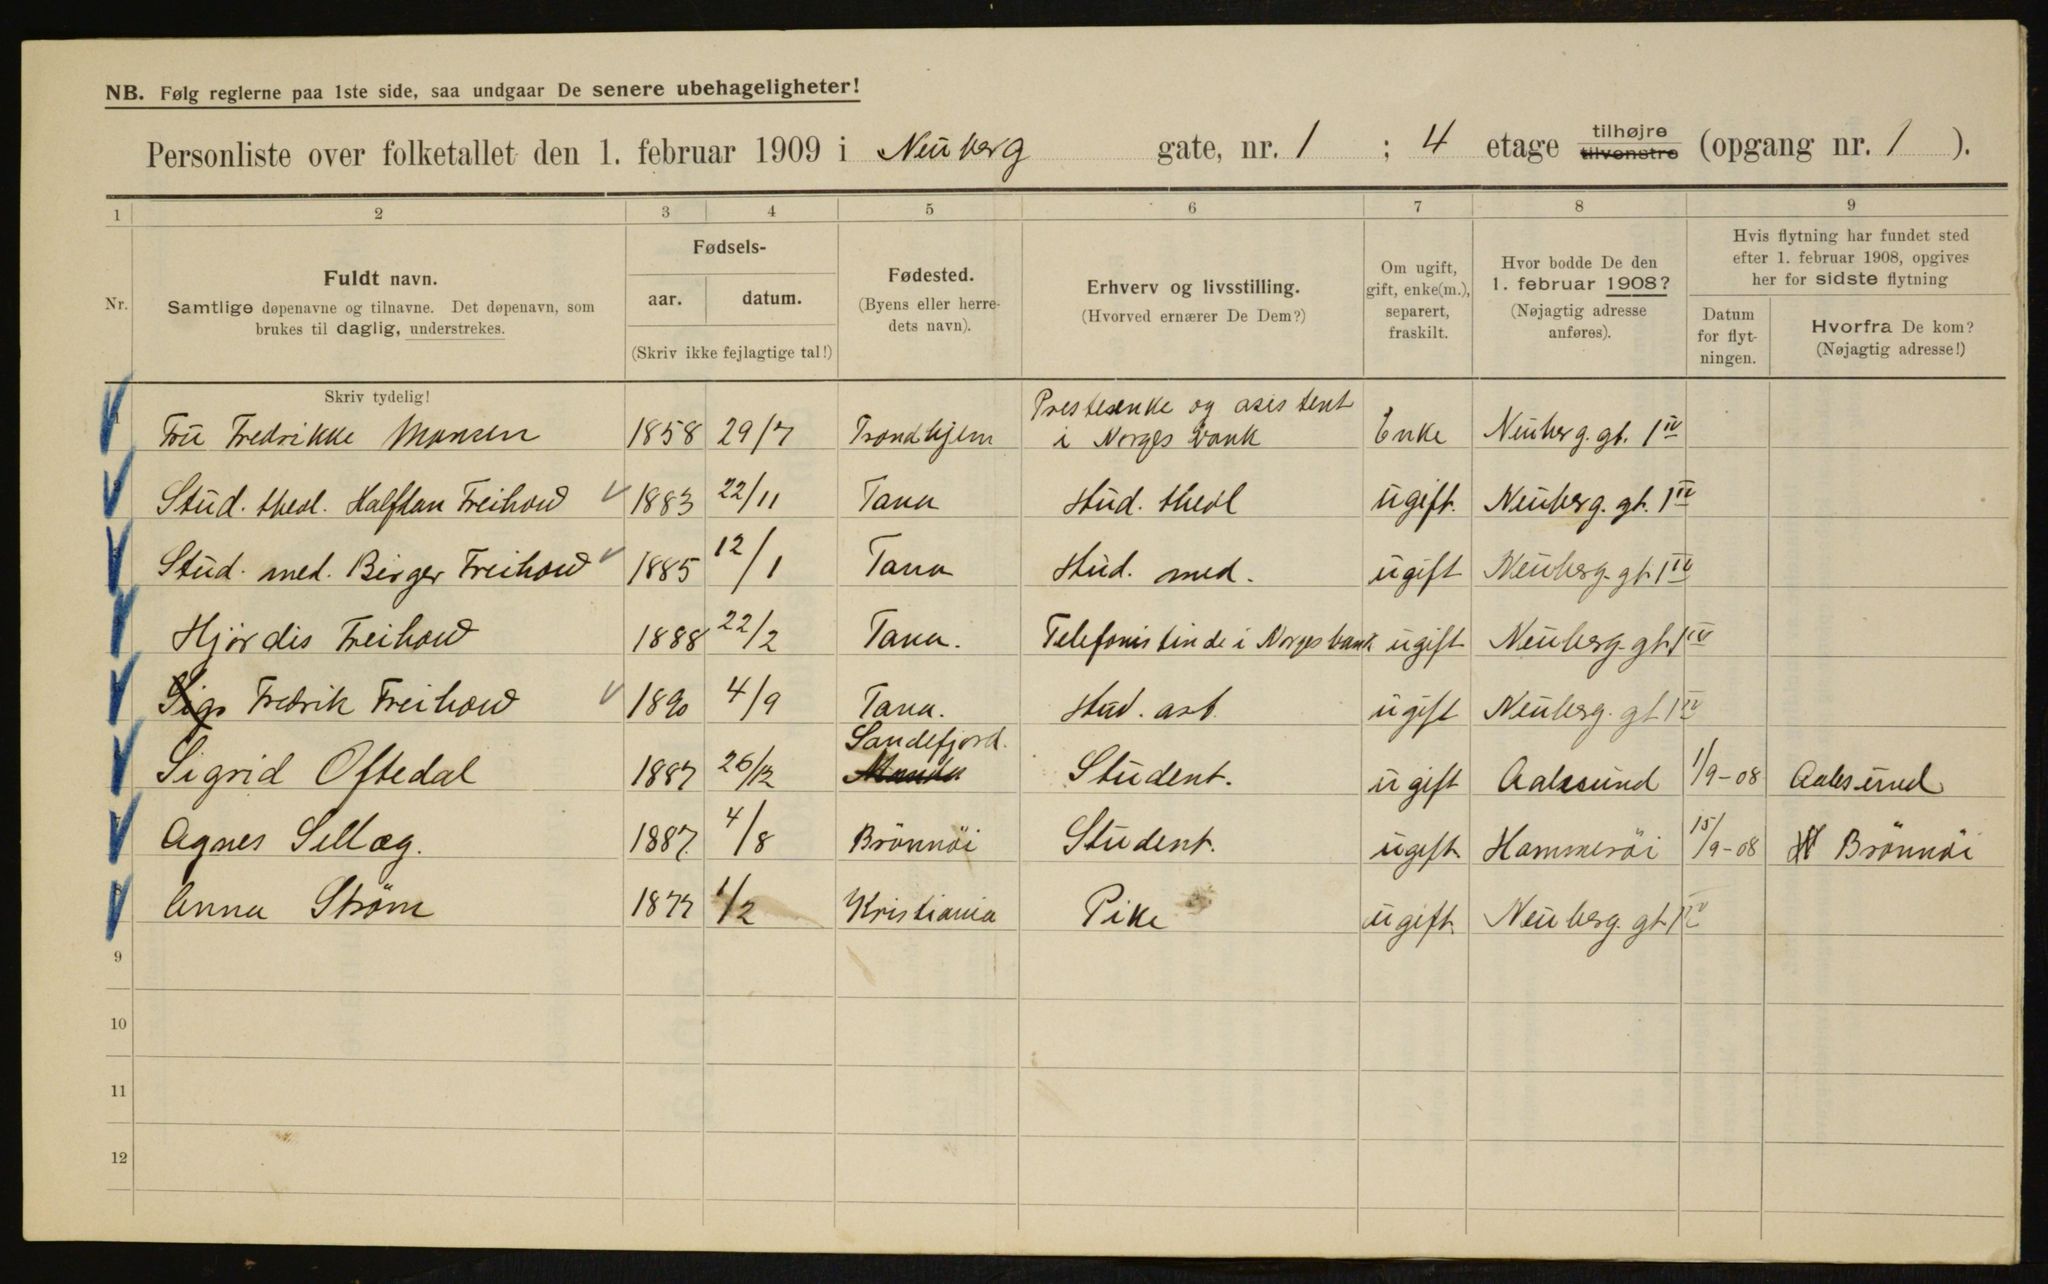 NB. Følg reglerne paa 1ste side, saa undgaar De senere ubehageligheter!
Personliste over folketallet den 1. februar 1909 i Neuberg gate, nr. 1 ; 4 etage tilhøjre tilvenstre (opgang nr. 1 ).
1 2 3 4 5 6 7 8 9
Nr.
Fuldt navn.
Samtlige døpenavne og tilnavne. Det døpenavn, som
brukes til daglig, understrekes.
Fødsels-
aar. datum.
(Skriv ikke fejlagtige tal!)
Fødested.
(Byens eller herre-
dets navn).
Erhverv og livsstilling.
(Hvorved ernærer De Dem?)
Om ugift,
gift, enke(m.),
separert,
fraskilt.
Hvor bodde De den
1. februar 1908?
(Nøjagtig adresse
anføres).
Hvis flytning har fundet sted
efter 1. februar 1908, opgives
her for sidste flytning
Datum
for flyt-
ningen.
Hvorfra De kom?
(Nøjagtig adresse!)
Skriv tydelig!
Fru Fredrikke Monsen 1858 29/7 Trondhjem Presteenke og asistent
i Norges bank Enke Neuberg. gt. 1 IV
Stud. theol. Halfdan Freihow 1883 22/11 Tana Stud. theol ugift. Neuberg. gt. 1 IV
Stud. med. Birger Freihow 1885 12/1 Tana Stud. med. ugift Neuberg. gt. 1 IV
Hjördis Freihow 1888 22/2 Tana. Telefonistinde i Norges bank ugift Neuberg. gt. 1 IV
Sigr Fredrik Freihow 1890 4/9 Tana. Stud. art. ugift Neuberg. gt 1 IV
Sigrid Oftedal 1887 26/12 Sandefjord. Student. ugift Aalesund 1/9-08 Aalesund
Agnes Sellæg. 1887. 4/8 Brönnöi Student. ugift. Hammeröi 15/9-08 H Brönnöi
Anna Strøm 1877 1/2 Kristiania Pike ugift. Neuberg. gt. 1 IV
9
10
11
12